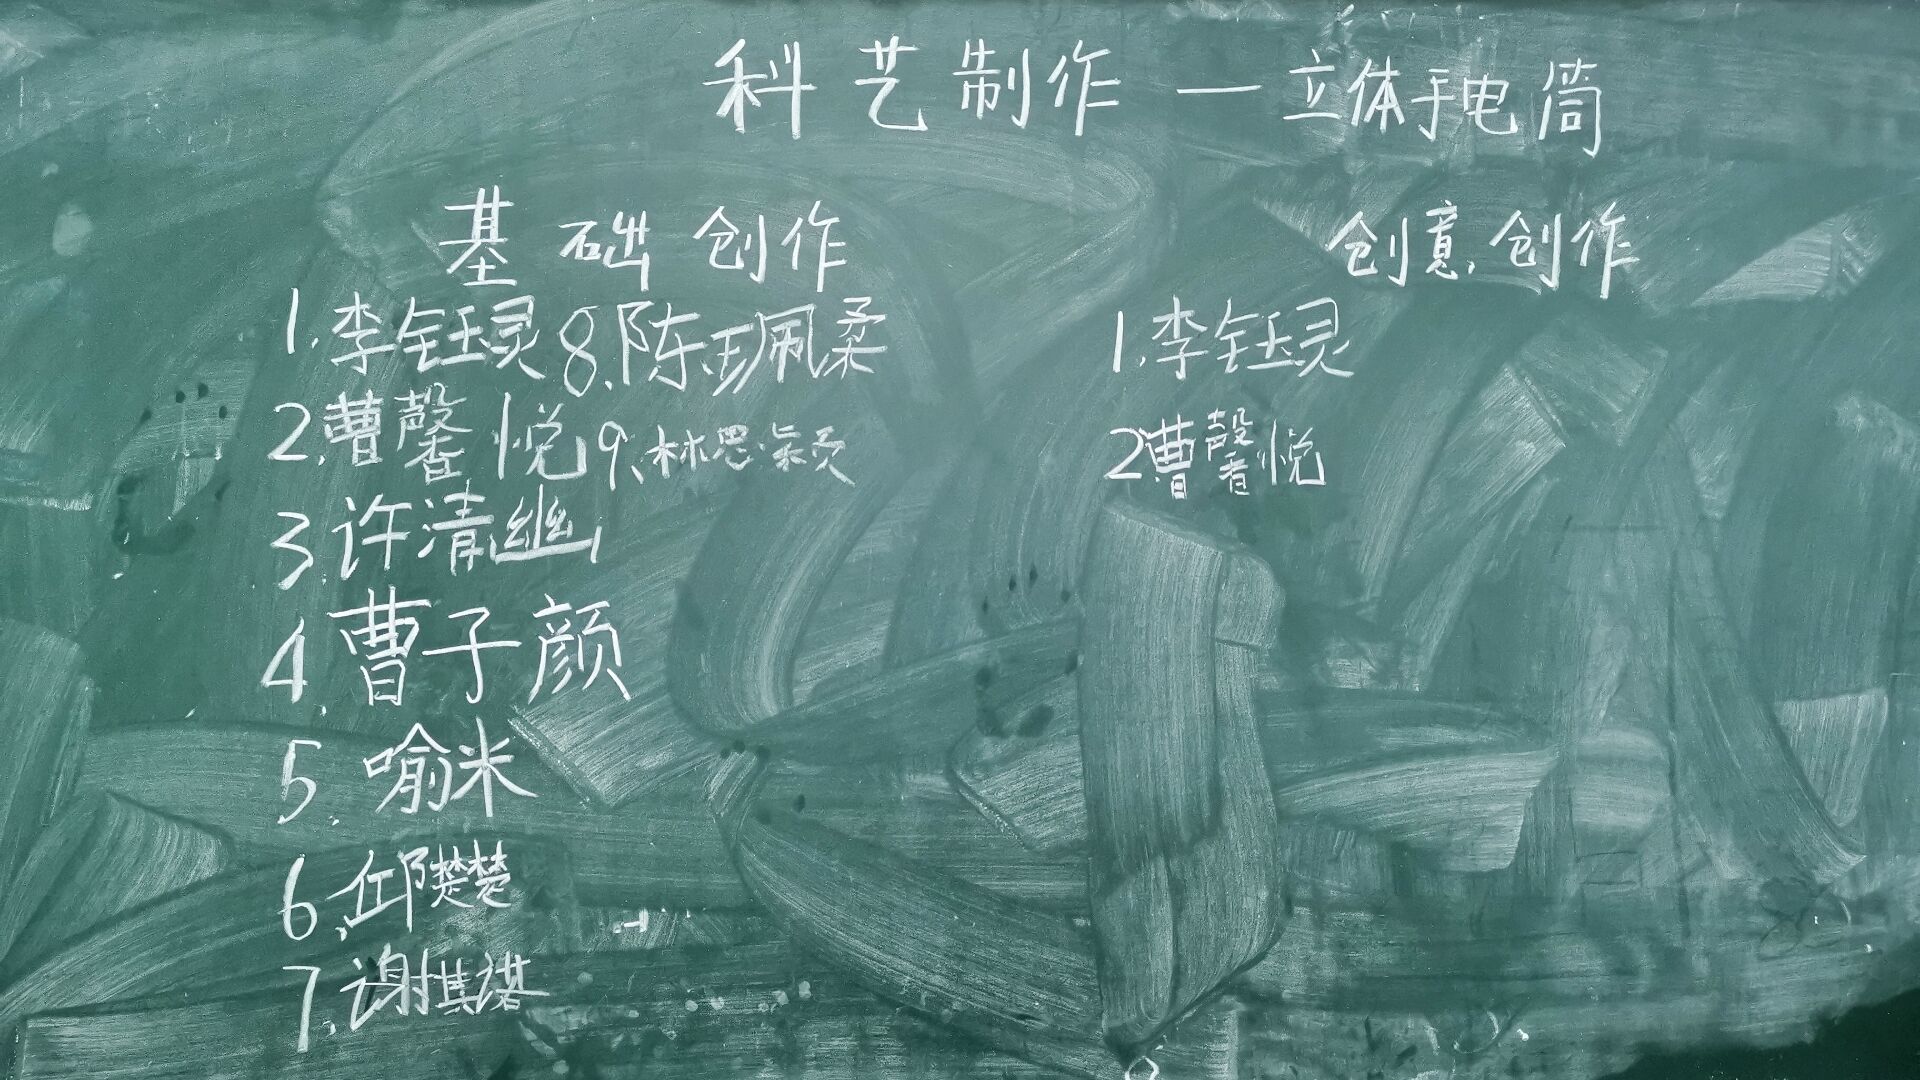 科艺制作—立体手电筒
基础创作
1.李钰灵 8.陈珮柔
2.曹馨悦 9.林思颖
3.许清幽
4.曹子颜
5.喻米
6.邱樊楚
7.谢其诺
创意创作
1.李钰灵
2.曹馨悦